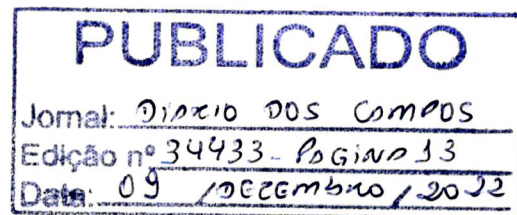 PUBLICADO
Jornal: DIARIO DOS CAMPOS
Edição nº 34433 - PAGINA 13
Data: 09 / DEZEMBRO / 2022